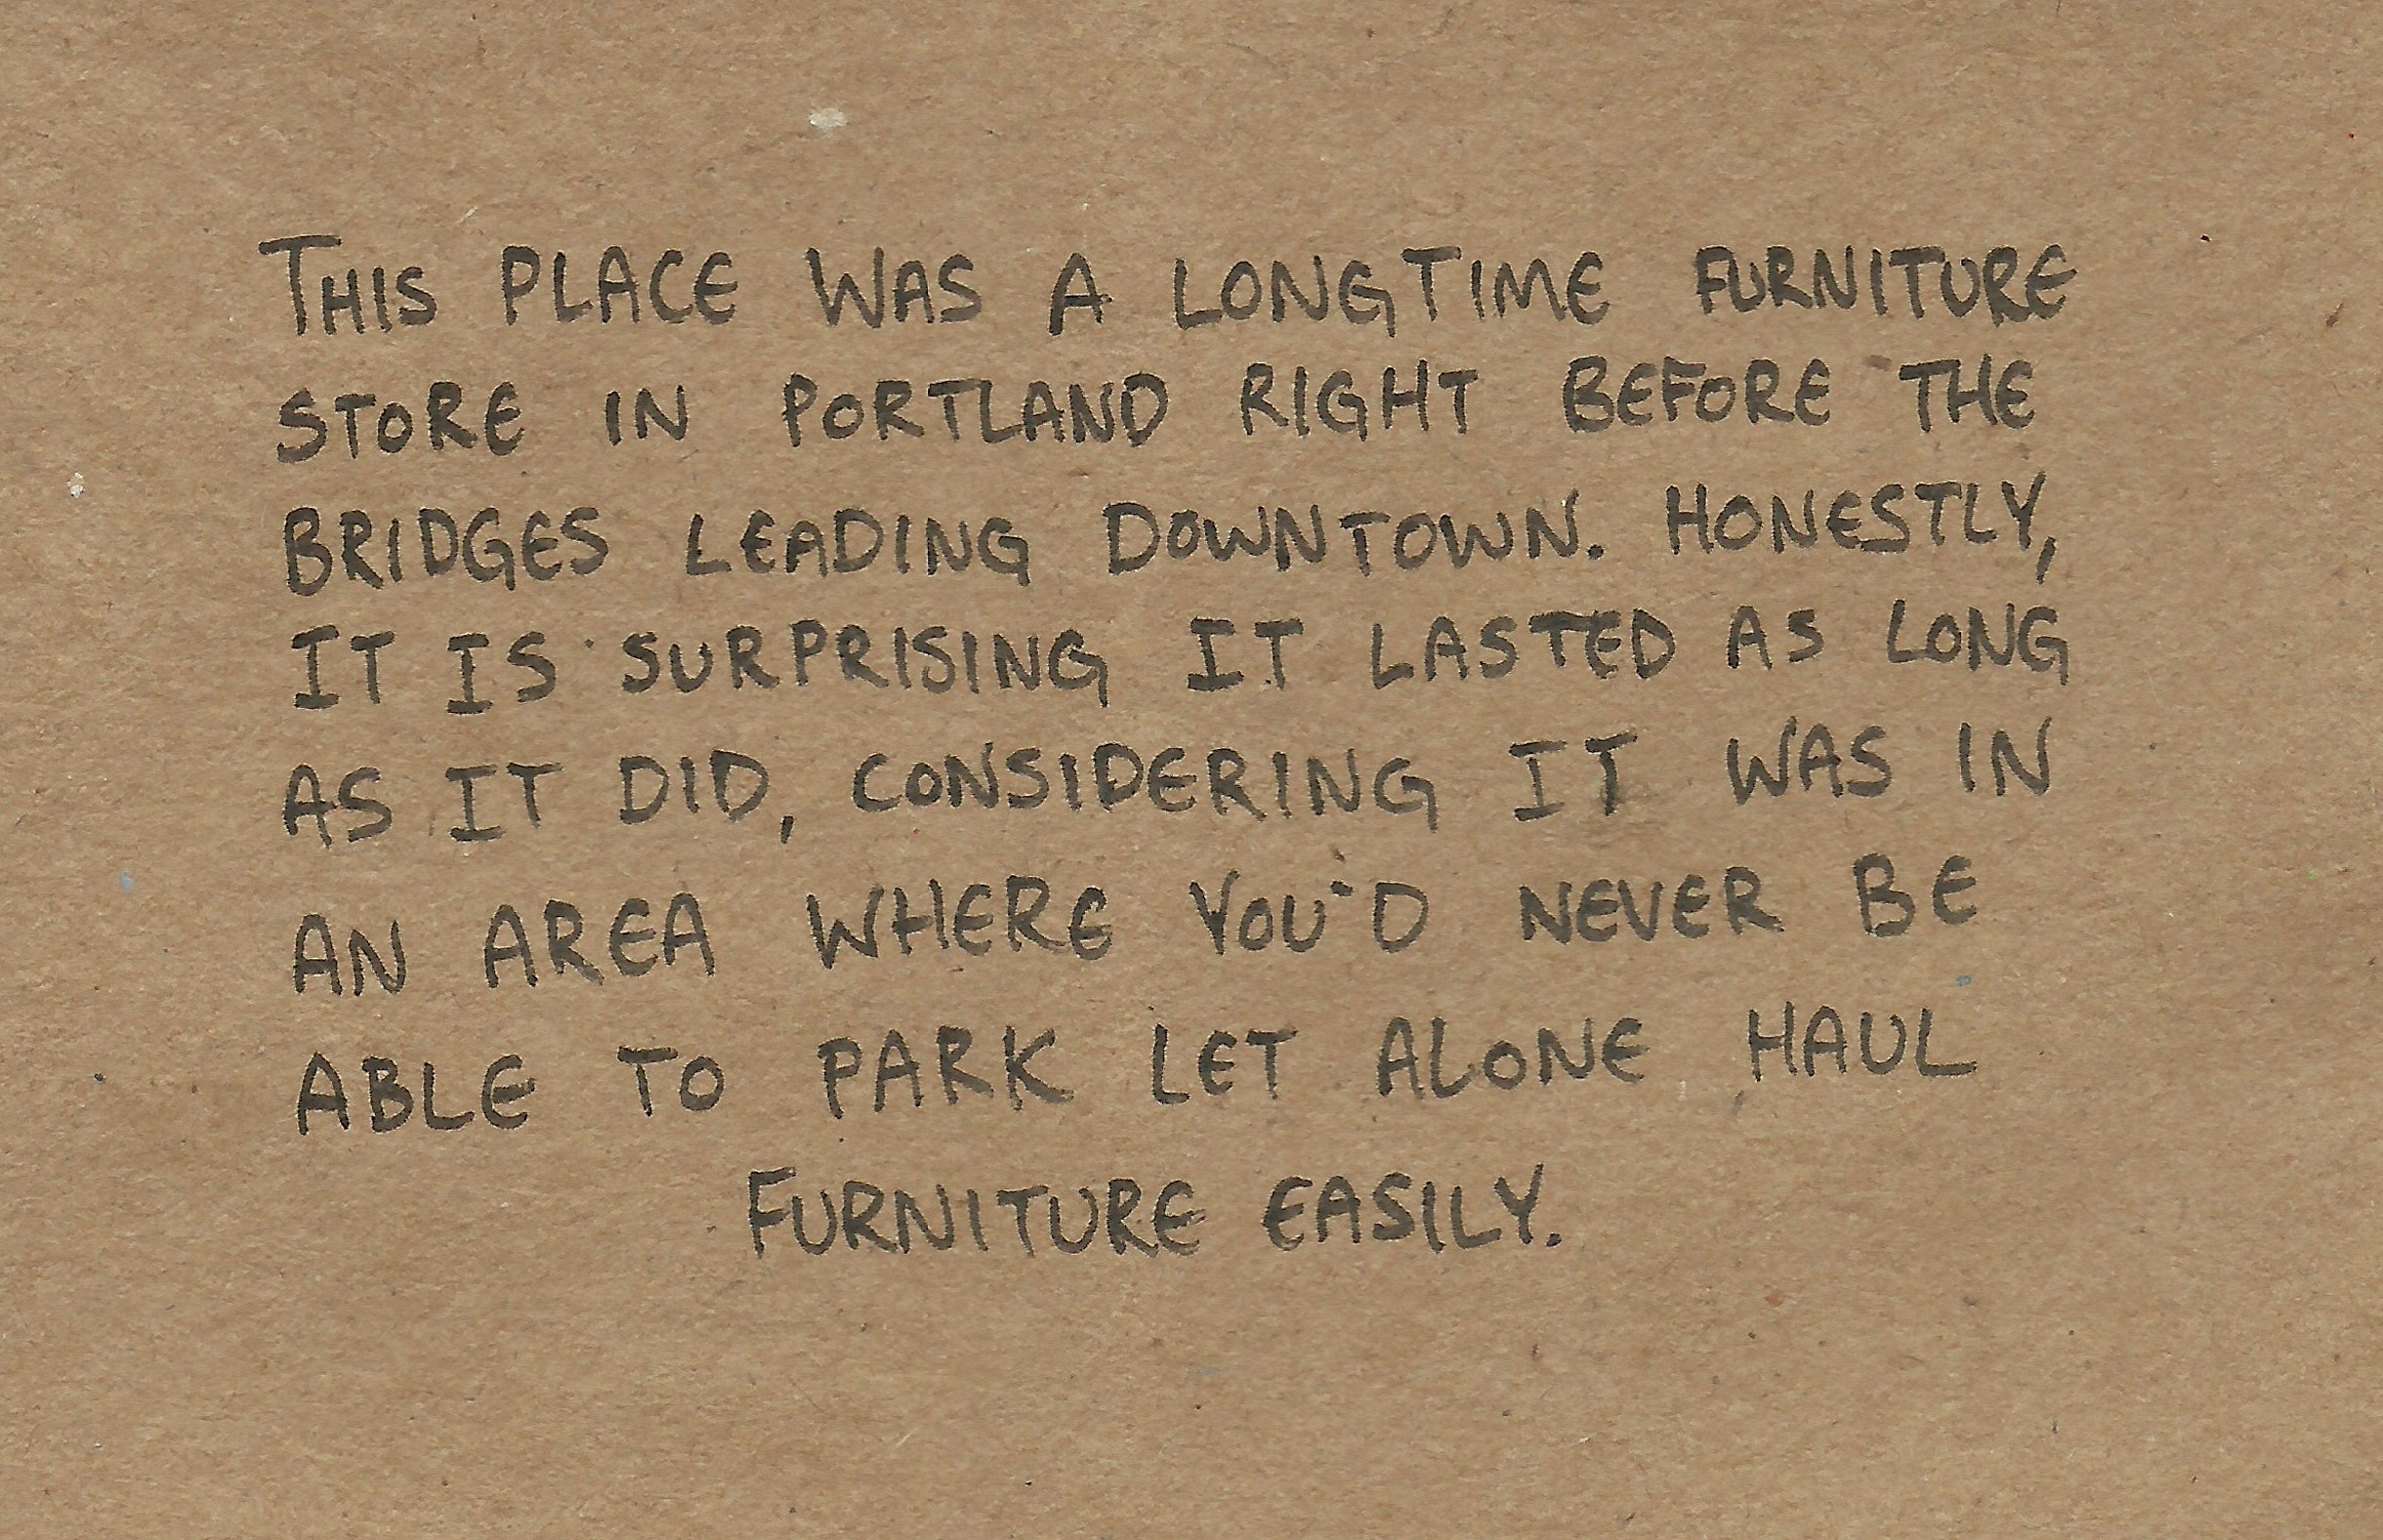 THIS PLACE WAS A LONGTIME FURNITURE
STORE IN PORTLAND RIGHT BEFORE THE
BRIDGES LEADING DOWNTOWN. HONESTLY,
IT IS SURPRISING IT LASTED AS LONG
AS IT DID, CONSIDERING IT WAS IN
AN AREA WHERE YOU'D NEVER BE
ABLE TO PARK LET ALONE HAUL
FURNITURE EASILY.